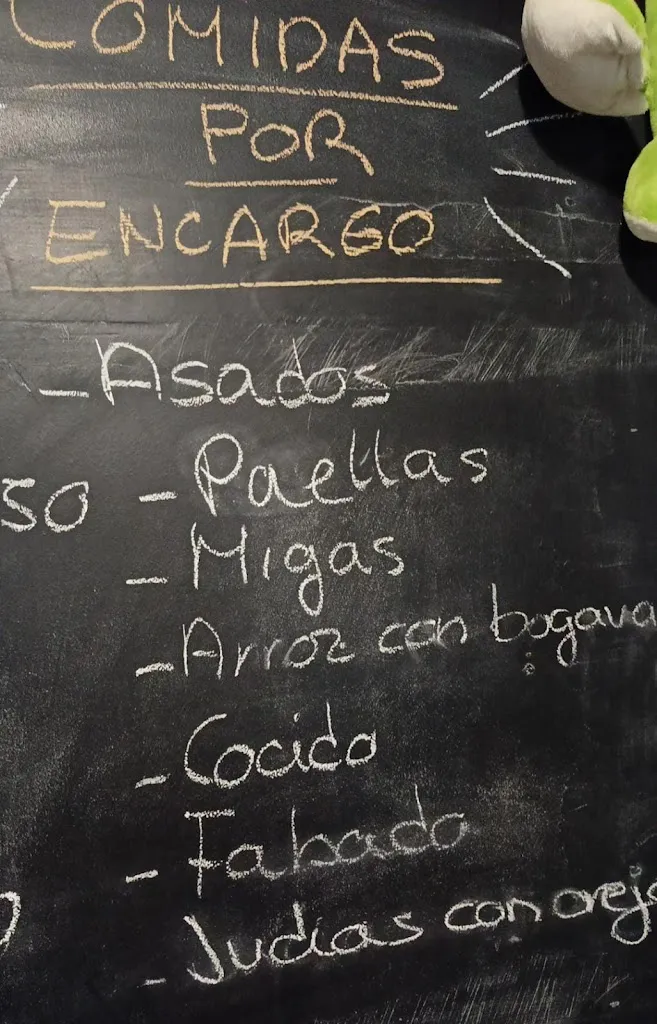 COMIDAS
POR
ENCARGO
- Asados
50 - Paellas
- Migas
- Arroz con bogava
- Cocido
- Fabada
- Judias con oreja